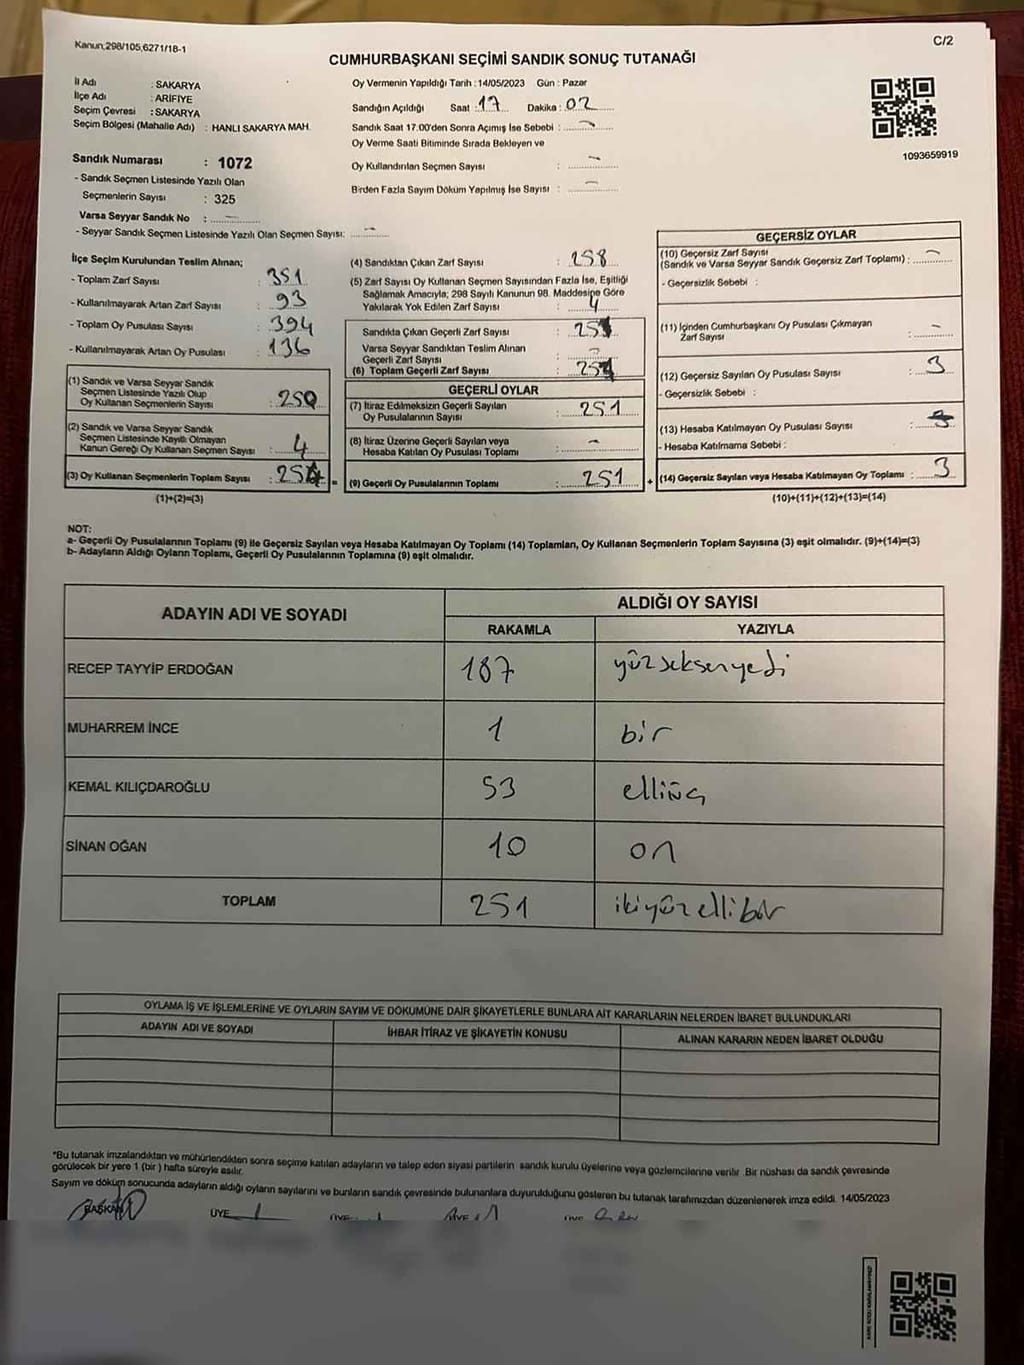 Kanun,298/105,6271/18-1
C/2
CUMHURBAŞKANI SEÇİMİ SANDIK SONUÇ TUTANAĞI
İl Adı : SAKARYA
İlçe Adı : ARİFİYE
Seçim Çevresi : SAKARYA
Seçim Bölgesi (Mahalle Adı) : HANLI SAKARYA MAH.
Sandık Numarası : 1072
- Sandık Seçmen Listesinde Yazılı Olan
Seçmenlerin Sayısı : 325
Varsa Seyyar Sandık No : -
- Seyyar Sandık Seçmen Listesinde Yazılı Olan Seçmen Sayısı: -
Oy Vermenin Yapıldığı Tarih : 14/05/2023 Gün : Pazar
Sandığın Açıldığı Saat : 17 Dakika : 02
Sandık Saat 17.00'den Sonra Açımış İse Sebebi : -
Oy Verme Saati Bitiminde Sırada Bekleyen ve
Oy Kullandırılan Seçmen Sayısı : -
Birden Fazla Sayım Döküm Yapılmış İse Sayısı : -
1093659919
İlçe Seçim Kurulundan Teslim Alınan;
- Toplam Zarf Sayısı : 351
- Kullanılmayarak Artan Zarf Sayısı : 93
- Toplam Oy Pusulası Sayısı : 394
- Kullanılmayarak Artan Oy Pusulası : 136
(1) Sandık ve Varsa Seyyar Sandık
Seçmen Listesinde Yazılı Olup
Oy Kullanan Seçmenlerin Sayısı : 250
(2) Sandık ve Varsa Seyyar Sandık
Seçmen Listesinde Kayıtlı Olmayan
Kanun Gereği Oy Kullanan Seçmen Sayısı : 4
(3) Oy Kullanan Seçmenlerin Toplam Sayısı : 254
(1)+(2)=(3)
(4) Sandıktan Çıkan Zarf Sayısı : 258
(5) Zarf Sayısı Oy Kullanan Seçmen Sayısından Fazla İse, Eşitliği
Sağlamak Amacıyla; 298 Sayılı Kanunun 98. Maddesine Göre
Yakılarak Yok Edilen Zarf Sayısı : 4
Sandıkta Çıkan Geçerli Zarf Sayısı :
Varsa Seyyar Sandıktan Teslim Alınan
Geçerli Zarf Sayısı : -
(6) Toplam Geçerli Zarf Sayısı :
GEÇERLİ OYLAR
(7) İtiraz Edilmeksizin Geçerli Sayılan
Oy Pusulalarının Sayısı : 251
(8) İtiraz Üzerine Geçerli Sayılan veya
Hesaba Katılan Oy Pusulası Toplamı : -
= (9) Geçerli Oy Pusulalarının Toplamı : 251
GEÇERSİZ OYLAR
(10) Geçersiz Zarf Sayısı
(Sandık ve Varsa Seyyar Sandık Geçersiz Zarf Toplamı) : -
- Geçersizlik Sebebi :
(11) İçinden Cumhurbaşkanı Oy Pusulası Çıkmayan
Zarf Sayısı : -
(12) Geçersiz Sayılan Oy Pusulası Sayısı : 3
- Geçersizlik Sebebi :
(13) Hesaba Katılmayan Oy Pusulası Sayısı :
- Hesaba Katılmama Sebebi :
+ (14) Geçersiz Sayılan veya Hesaba Katılmayan Oy Toplamı : 3
(10)+(11)+(12)+(13)=(14)
NOT:
a- Geçerli Oy Pusulalarının Toplamı (9) ile Geçersiz Sayılan veya Hesaba Katılmayan Oy Toplamı (14) Toplamları, Oy Kullanan Seçmenlerin Toplam Sayısına (3) eşit olmalıdır. (9)+(14)=(3)
b- Adayların Aldığı Oyların Toplamı, Geçerli Oy Pusulalarının Toplamına (9) eşit olmalıdır.
ADAYIN ADI VE SOYADI
ALDIĞI OY SAYISI
RAKAMLA YAZIYLA
RECEP TAYYİP ERDOĞAN 187 yüzseksenyedi
MUHARREM İNCE 1 bir
KEMAL KILIÇDAROĞLU 53 elliüç
SİNAN OĞAN 10 on
TOPLAM 251 ikiyüzellibir
OYLAMA İŞ VE İŞLEMLERİNE VE OYLARIN SAYIM VE DÖKÜMÜNE DAİR ŞİKAYETLERLE BUNLARA AİT KARARLARIN NELERDEN İBARET BULUNDUKLARI
ADAYIN ADI VE SOYADI İHBAR İTİRAZ VE ŞİKAYETİN KONUSU ALINAN KARARIN NEDEN İBARET OLDUĞU
*Bu tutanak imzalandıktan ve mühürlendikten sonra seçime katılan adayların ve talep eden siyasi partilerin sandık kurulu üyelerine veya gözlemcilerine verilir. Bir nüshası da sandık çevresinde
görülecek bir yere 1 (bir) hafta süreyle asılır.
Sayım ve döküm sonucunda adayların aldığı oyların sayılarını ve bunların sandık çevresinde bulunanlara duyurulduğunu gösteren bu tutanak tarafımızdan düzenlenerek imza edildi. 14/05/2023
BAŞKAN ÜYE ÜYE ÜYE ÜYE